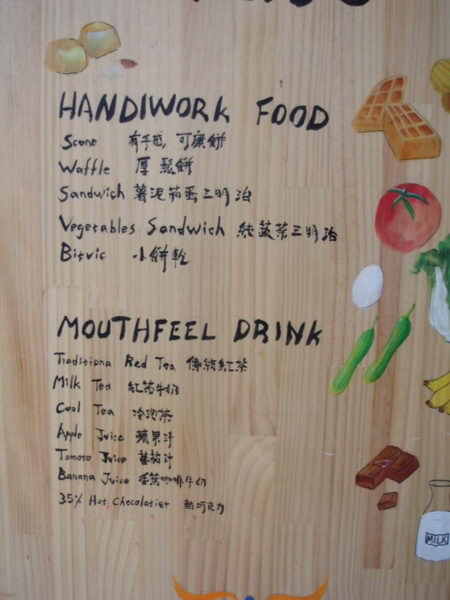 HANDIWORK FOOD
Scone 有手感,可麗餅
Waffle 厚鬆餅
Sandwich 薯泥茄蛋三明治
Vegetables Sandwich 純蔬菜三明治
Bitvic 小餅乾
MOUTHFEEL DRINK
Traditiona Red Tea 傳統紅茶
Milk Tea 紅茶牛奶
Cool Tea 冷泡茶
Apple Juice 蘋果汁
Tomato Juice 蕃茄汁
Banana Juice 香蕉咖啡牛奶
35% Hot Chocolatier 熱巧克力
MILK